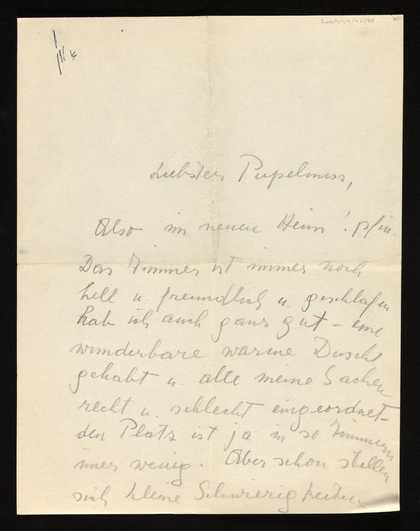 Liebster Pupelmuss,
Also im neuen Heim!
Das Zimmer ist immer noch
hell u. freundlich u. geschlafen
hab ich auch ganz gut – eine
wunderbare warme Dusche
gehabt u. alle meine Sachen
recht u. schlecht eingeordnet –
den Platz ist ja in so Zimmern
immer wenig. Aber schon stellen
sich kleine Schwierigkeiten